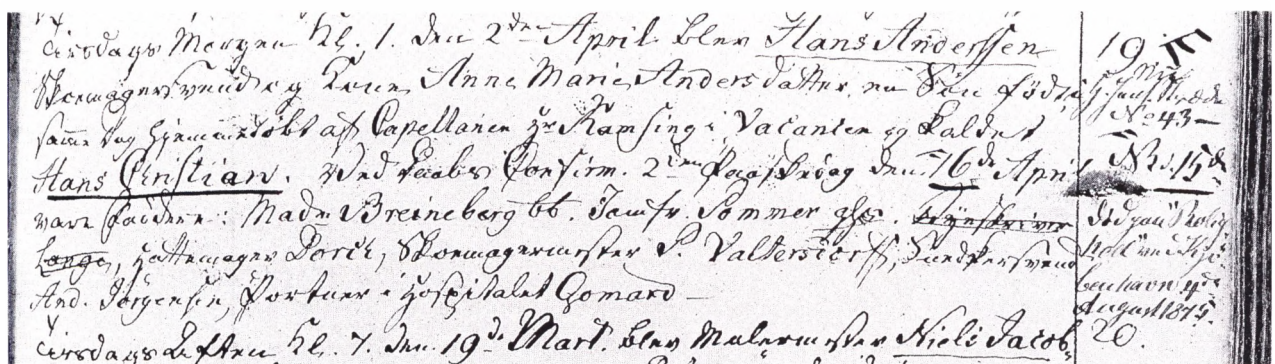 Tirsdags Morgen Kl. 1. den 2den April blev Hans Anderssen
Skoemagersvend og Kone Anne Marie Andersdatter en Søn fød,
samme dag hjemmedøbt af Capellanen Hr Ramsing i Vacancen og kaldet
Hans Christian. Ved Daabs Confirm. 2den Paaskedag den 16de April
vare Faddere: Madm Breineberg bb. Jomfr. Sommer
Lange, Hattemager Dorch, Skoemagermester P. Valtersdorff, Snedkersvend
And. Jørgensen, Portner i Hospitalet Gomard —
Tirsdags Aften Kl. 7. den 19de Mart. blev Malermester Niels Jacob
19
No 43 —
død paa Rolig
hed ved Kjø
benhavn 4de
August 1875.
20.